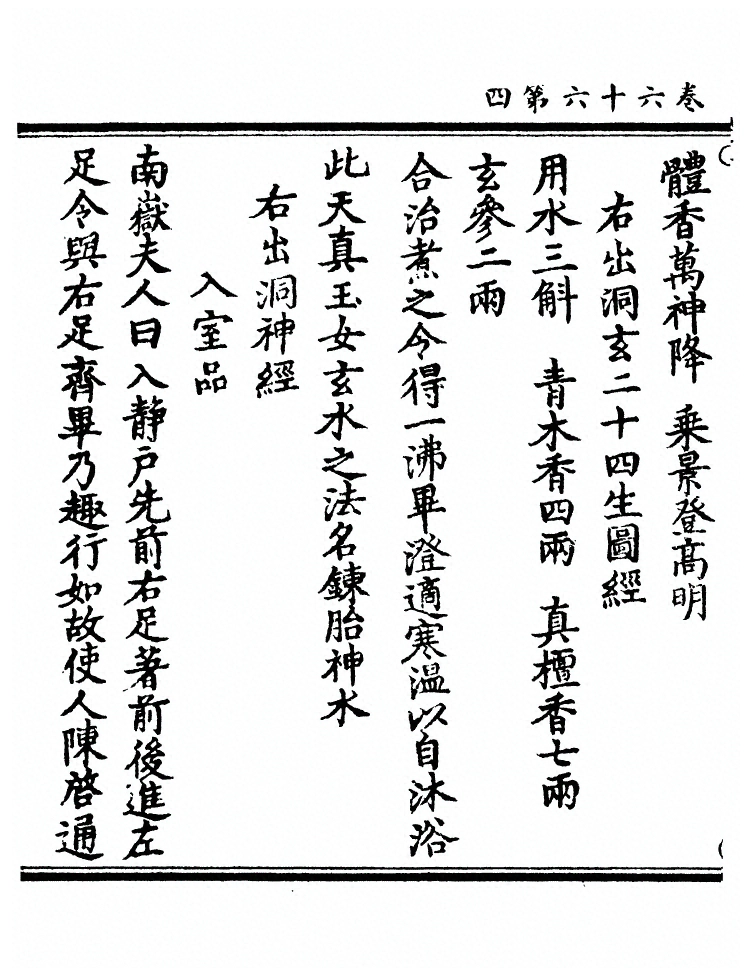 卷六十六第四
體香萬神降　乘景登高明
右出洞玄二十四生圖經
用水三斛　青木香四兩　真檀香七兩
玄參二兩
合治煮之令得一沸畢澄適寒溫以自沐浴
此天真玉女玄水之法名鍊胎神水
右出洞神經
入室品
南嶽夫人曰入静户先前右足著前後進左
足令與右足齊畢乃趣行如故使人陳啓通